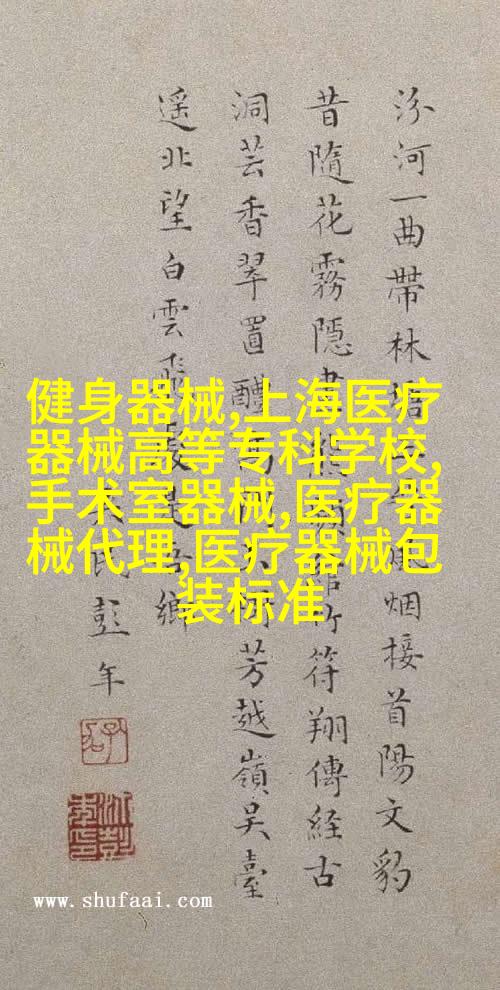 汾河一曲帶林烟接首陽文豹
昔隨花霧隱竹符翔傳経古
洞芸香翠置醴芳越嶺吳臺
遥北望白雲飛鄉
彭年
健身器械,上海医疗
器械高等专科学校,
手术室器械,医疗器
械代理,医疗器械包
装标准
www.shufaai.com